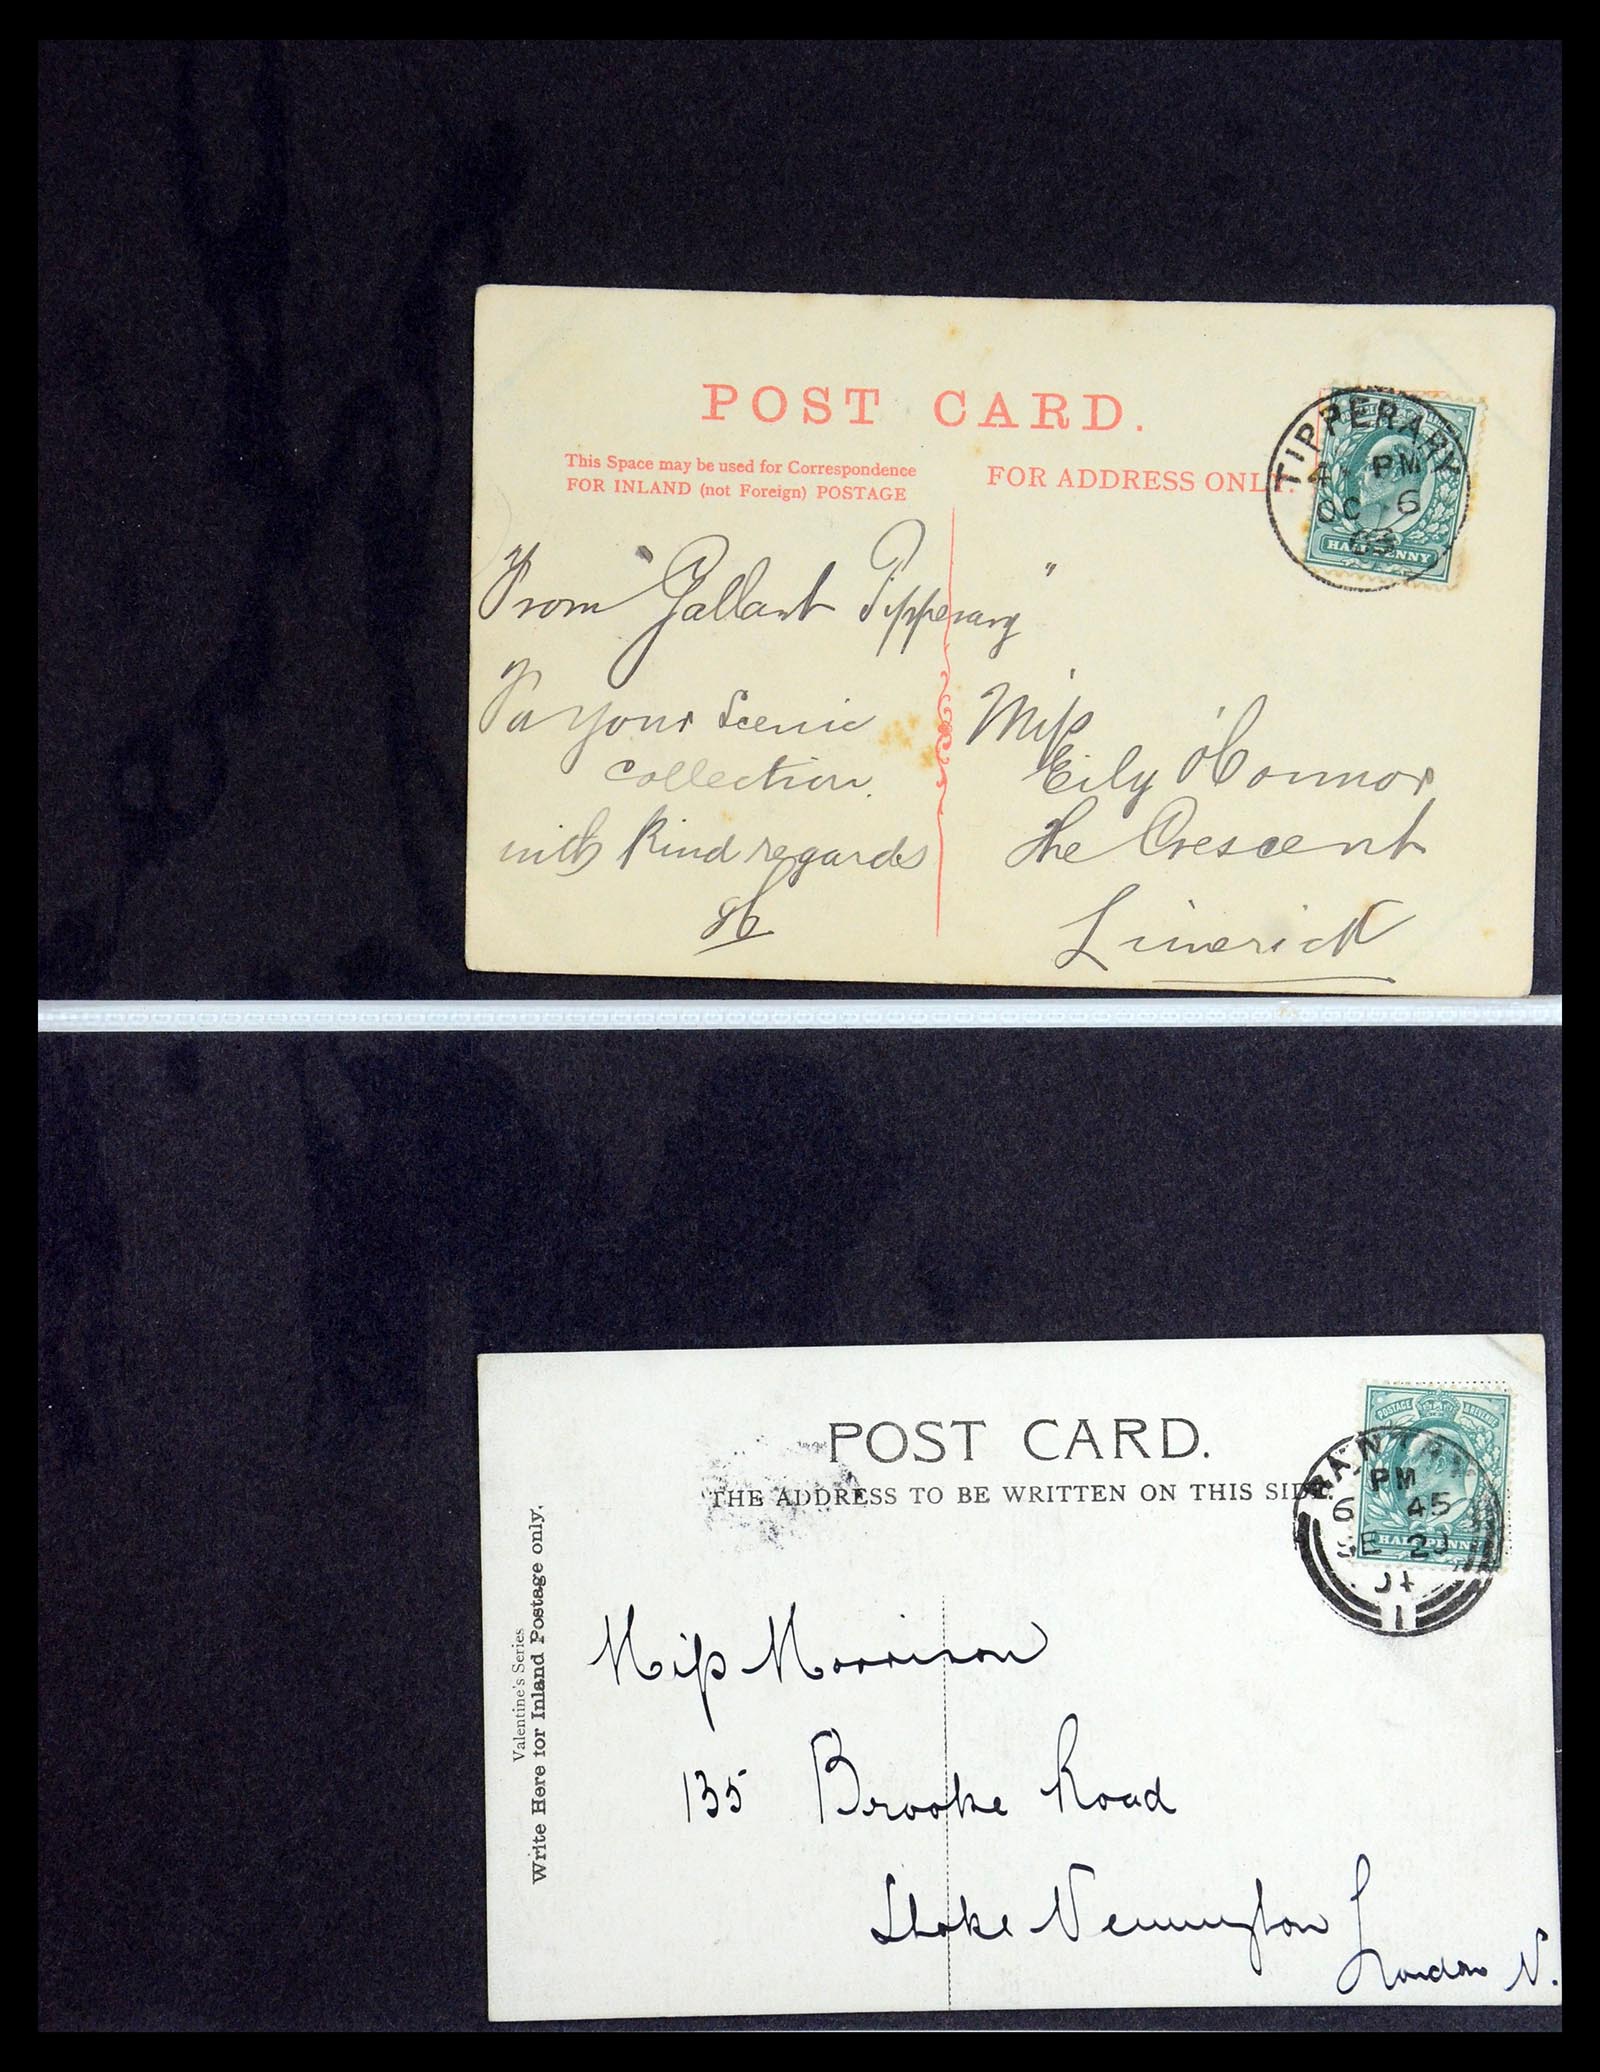 POST CARD.
This Space may be used for Correspondence
FOR INLAND (not Foreign) POSTAGE
FOR ADDRESS ONLY.
TIPPERARY
4 PM
OC 6
HALFPENNY
From "Gallant Tipperary"
To your Scenic
collection.
with kind regards
Miss
Eily O'Connor
The Crescent
Limerick
POST CARD.
THE ADDRESS TO BE WRITTEN ON THIS SIDE.
Valentine's Series
Write Here for Inland Postage only.
POSTAGE & REVENUE
PM
6 45
SE 20
04
1
HALFPENNY
Miss Morrison
135 Brooke Road
Stoke Newington
London N.